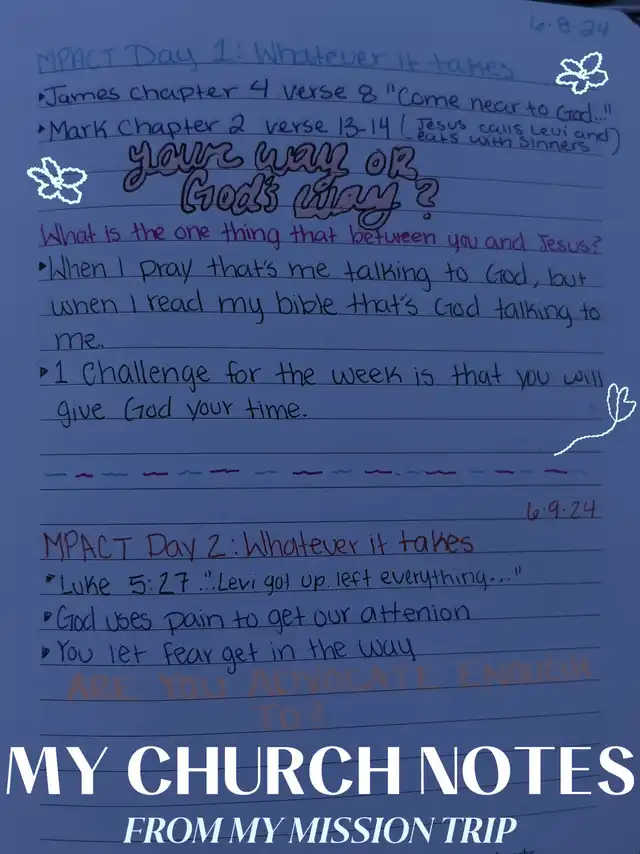 6-8-24
MPACT Day 1: Whatever it takes
•James chapter 4 verse 8 "Come near to God..."
•Mark Chapter 2 verse 13-14 (Jesus calls Levi and
eats with sinners)
your way OR
God's way?
What is the one thing that between you and Jesus?
•When I pray that's me talking to God, but
when I read my bible that's God talking to
me.
•1 Challenge for the week is that you will
give God your time.
6-9-24
MPACT Day 2: Whatever it takes
•Luke 5:27 "...Levi got up, left everything..."
•God uses pain to get our attenion
•You let fear get in the way
ARE YOU ADVOCATE ENOUGH
TO?
MY CHURCH NOTES
FROM MY MISSION TRIP